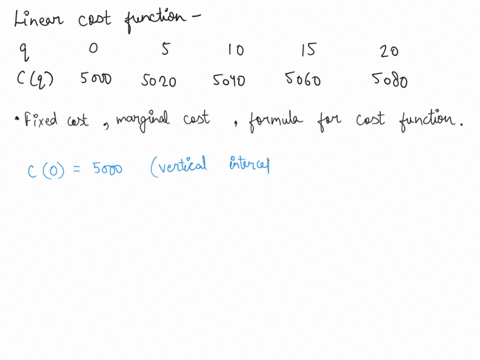 Linear cost function -
q 0 5 10 15 20
C(q) 5000 5020 5040 5060 5080
• Fixed cost, marginal cost, formula for cost function.
C(0) = 5000 (vertical intercep